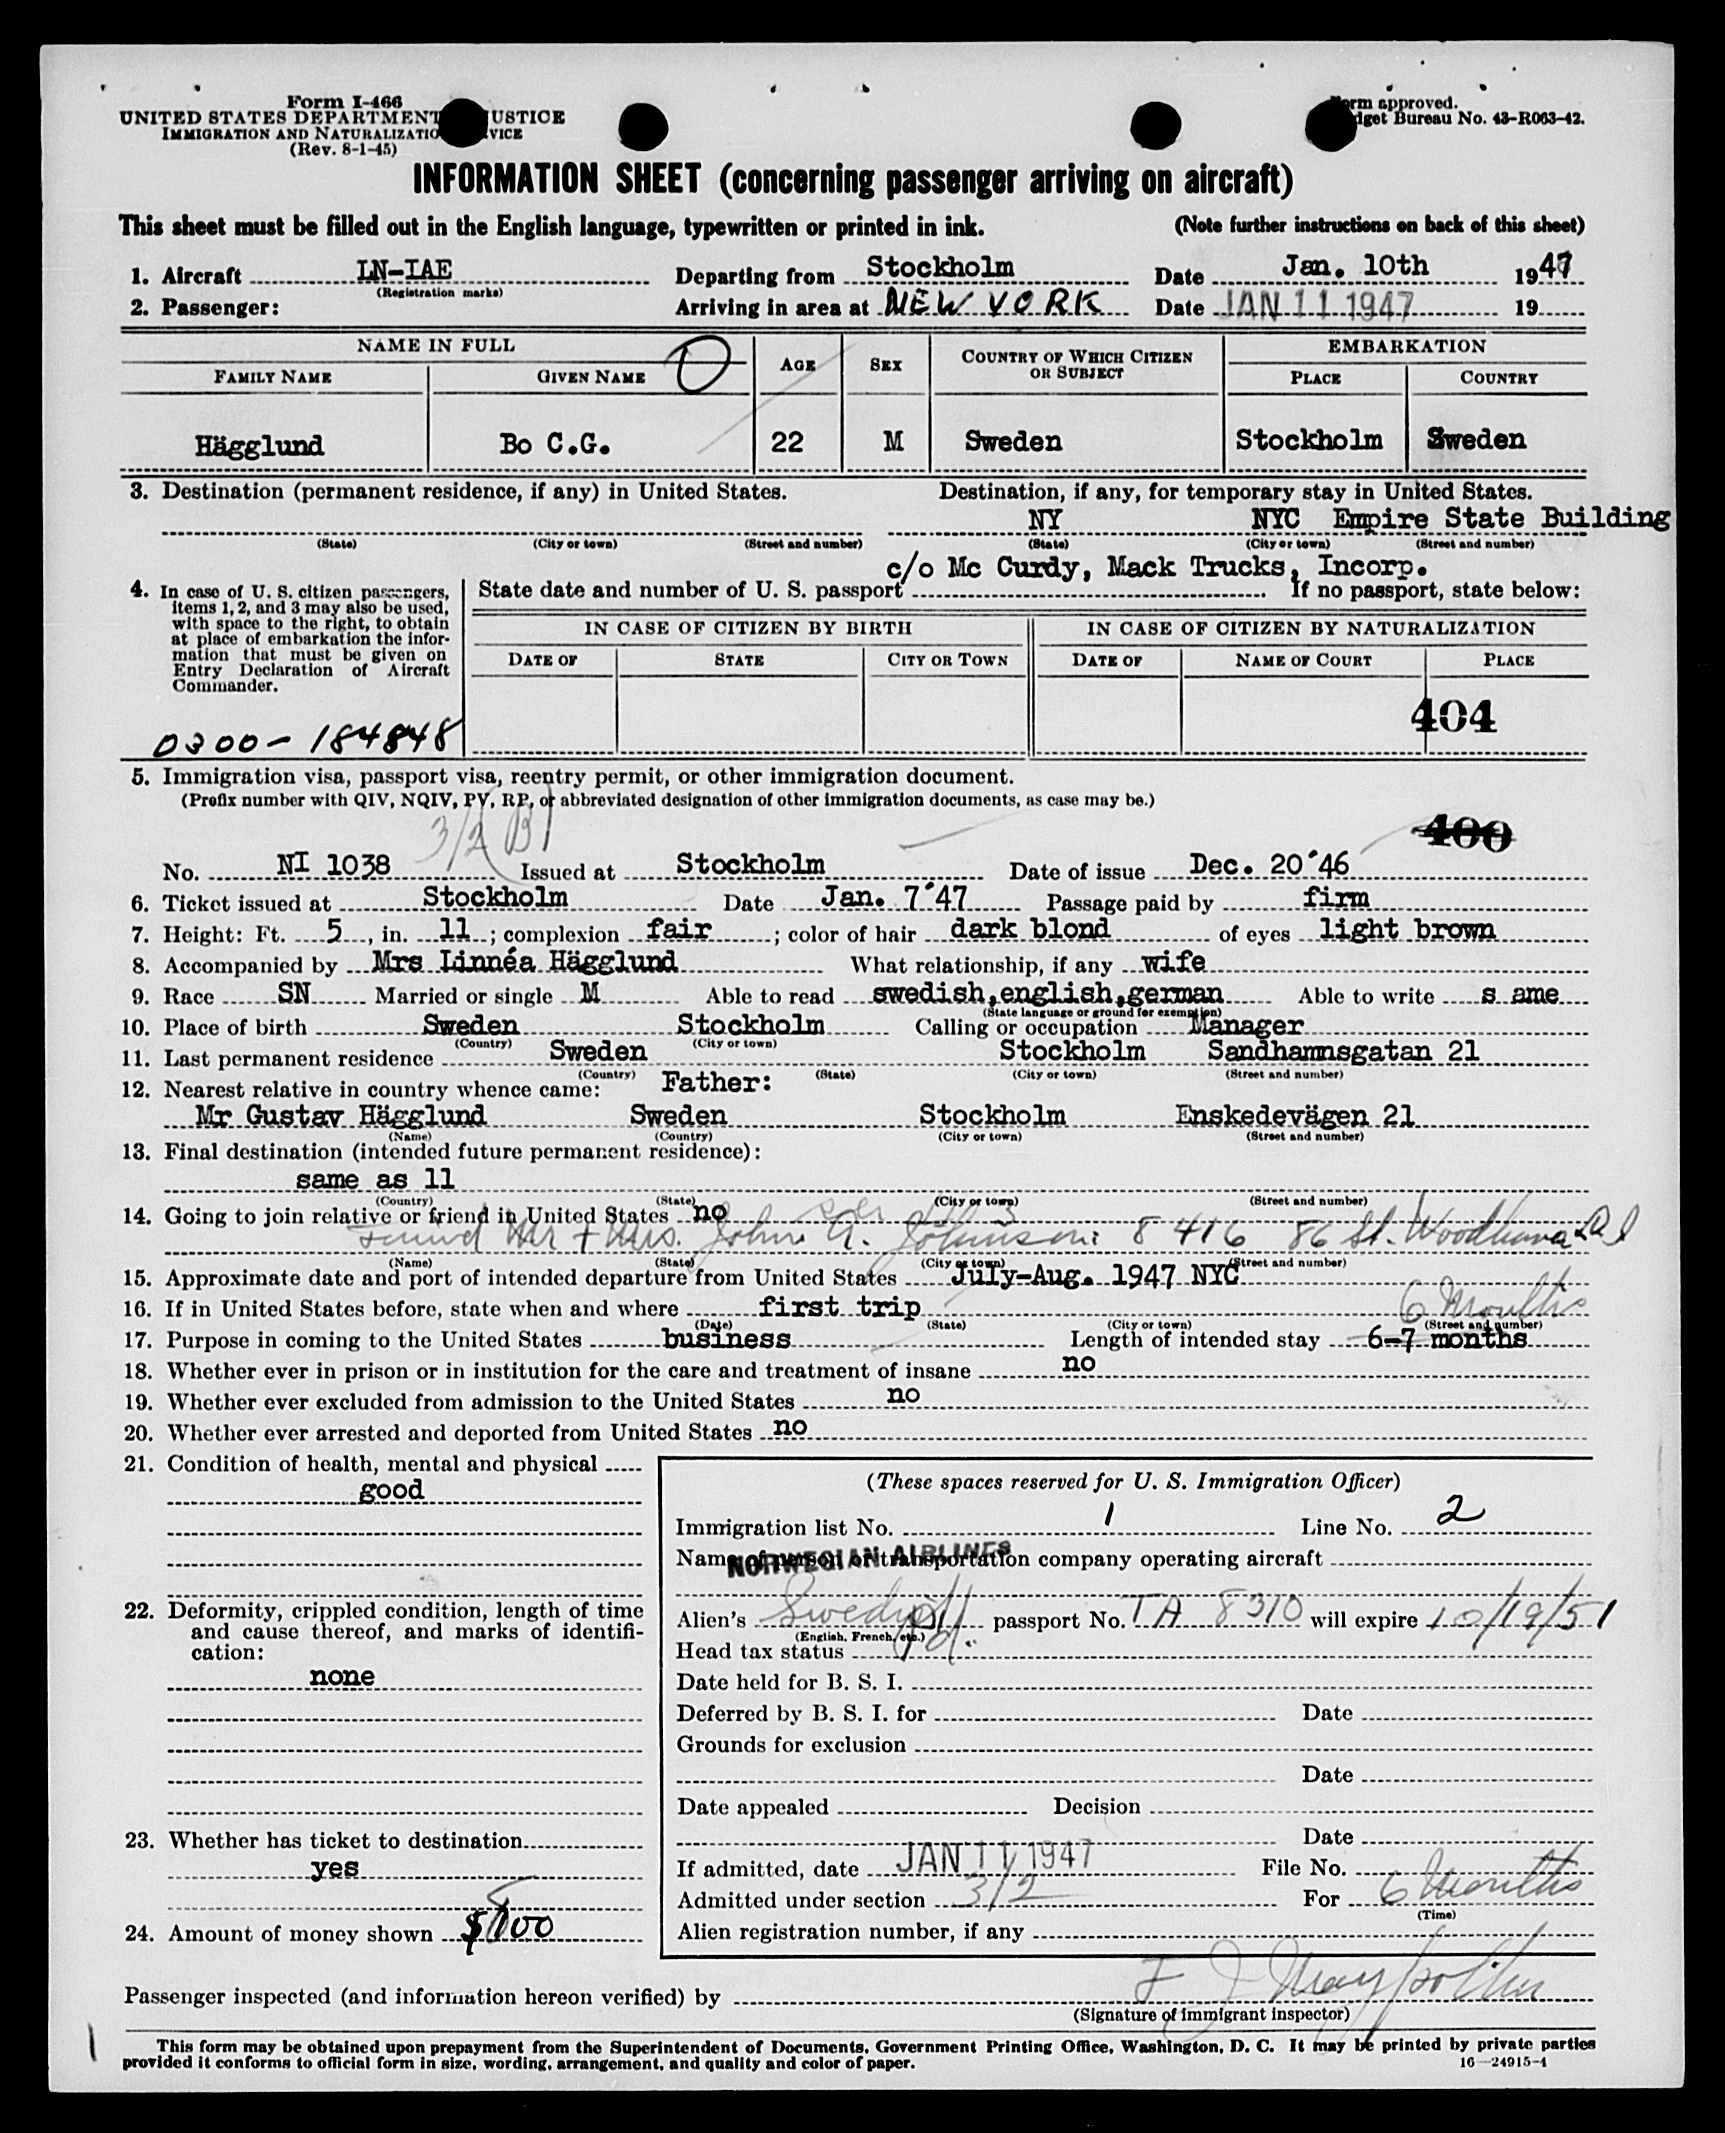 Form I-466
UNITED STATES DEPARTMENT USTICE
IMMIGRATION AND NATURALIZATIO VICE
(Rev. 8-1-45)
rm approved.
dget Bureau No. 43-R063-42.
INFORMATION SHEET (concerning passenger arriving on aircraft)
This sheet must be filled out in the English language, typewritten or printed in ink. (Note further instructions on back of this sheet)
1. Aircraft LN-IAE Departing from Stockholm Date Jan. 10th 1947
(Registration marks)
2. Passenger: Arriving in area at NEW YORK Date JAN 11 1947 19
NAME IN FULL AGE SEX COUNTRY OF WHICH CITIZEN OR SUBJECT EMBARKATION
FAMILY NAME GIVEN NAME PLACE COUNTRY
Hägglund Bo C.G. 22 M Sweden Stockholm Sweden
3. Destination (permanent residence, if any) in United States. Destination, if any, for temporary stay in United States.
NY NYC Empire State Building
(State) (City or town) (Street and number) (State) (City or town) (Street and number)
c/o Mc Curdy, Mack Trucks, Incorp.
4. In case of U. S. citizen passengers, items 1, 2, and 3 may also be used, with space to the right, to obtain at place of embarkation the information that must be given on Entry Declaration of Aircraft Commander.
State date and number of U. S. passport If no passport, state below:
IN CASE OF CITIZEN BY BIRTH IN CASE OF CITIZEN BY NATURALIZATION
DATE OF STATE CITY OR TOWN DATE OF NAME OF COURT PLACE
404
0300-184848
5. Immigration visa, passport visa, reentry permit, or other immigration document.
(Prefix number with QIV, NQIV, PV, RP, or abbreviated designation of other immigration documents, as case may be.)
3/2 (B)
400
No. NI 1038 Issued at Stockholm Date of issue Dec. 20´46
6. Ticket issued at Stockholm Date Jan. 7´47 Passage paid by firm
7. Height: Ft. 5, in. 11; complexion fair; color of hair dark blond of eyes light brown
8. Accompanied by Mrs Linnéa Hägglund What relationship, if any wife
9. Race SN Married or single M Able to read swedish,english,german Able to write s ame
(State language or ground for exemption)
10. Place of birth Sweden Stockholm Calling or occupation Manager
(Country) (City or town)
11. Last permanent residence Sweden Stockholm Sandhamnsgatan 21
(Country) (State) (City or town) (Street and number)
12. Nearest relative in country whence came: Father:
Mr Gustav Hägglund Sweden Stockholm Enskedevägen 21
(Name) (Country) (City or town) (Street and number)
13. Final destination (intended future permanent residence):
same as 11
(Country) (State) (City or town) (Street and number)
14. Going to join relative or friend in United States no
Friend Mr + Mrs. John A. Johnson: 8416 86 St. Woodhaven L I
(Name) (State) (City or town) (Street and number)
15. Approximate date and port of intended departure from United States July-Aug. 1947 NYC
16. If in United States before, state when and where first trip 6 Months
(Date) (State) (City or town) (Street and number)
17. Purpose in coming to the United States business Length of intended stay 6-7 months
18. Whether ever in prison or in institution for the care and treatment of insane no
19. Whether ever excluded from admission to the United States no
20. Whether ever arrested and deported from United States no
21. Condition of health, mental and physical
good
22. Deformity, crippled condition, length of time and cause thereof, and marks of identification:
none
23. Whether has ticket to destination
yes
24. Amount of money shown $100
(These spaces reserved for U. S. Immigration Officer)
Immigration list No. 1 Line No. 2
Name of person or transportation company operating aircraft
NORWEGIAN AIRLINES
Alien's Swedish passport No. TA 8310 will expire 10/19/51
(English, French, etc.)
Head tax status Pd.
Date held for B. S. I.
Deferred by B. S. I. for Date
Grounds for exclusion
Date
Date appealed Decision
Date
If admitted, date JAN 11 1947 File No.
Admitted under section 3/2 For 6 Months
(Time)
Alien registration number, if any
Passenger inspected (and information hereon verified) by
(Signature of immigrant inspector)
This form may be obtained upon prepayment from the Superintendent of Documents, Government Printing Office, Washington, D. C. It may be printed by private parties
provided it conforms to official form in size, wording, arrangement, and quality and color of paper. 16—24915-1